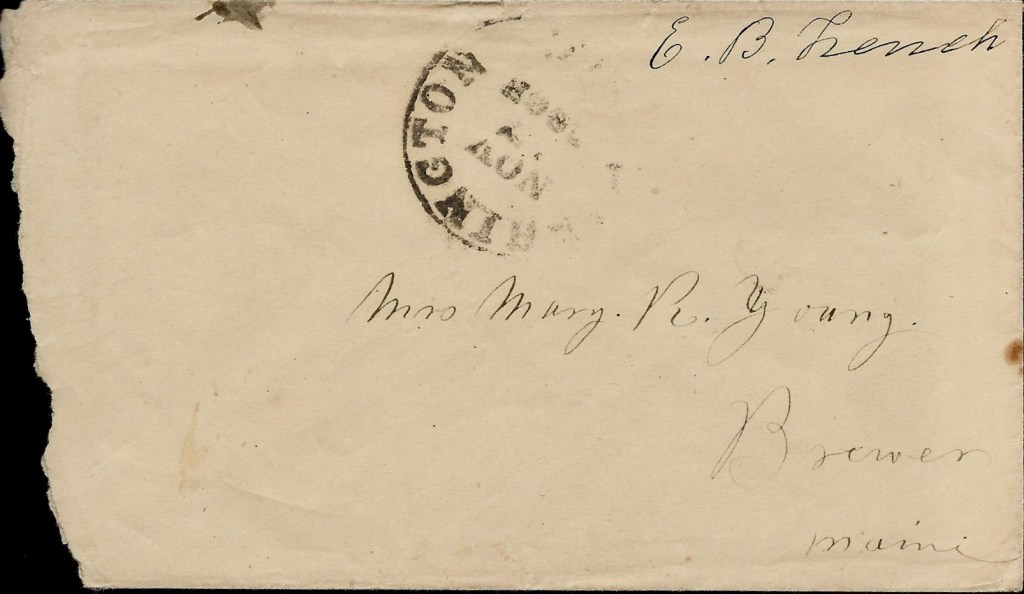 E. B. French
RINGTON
NOV
Mrs Mary. R. Young.
Brewer
maine